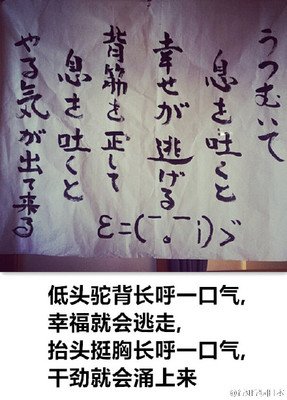 うつむいて
息を吐くと
幸せが逃げる
背筋を正して
息を吐くと
やる気が出て来る
ε=(¯。¯i)ゞ
低头驼背长呼一口气,
幸福就会逃走,
抬头挺胸长呼一口气,
干劲就会涌上来